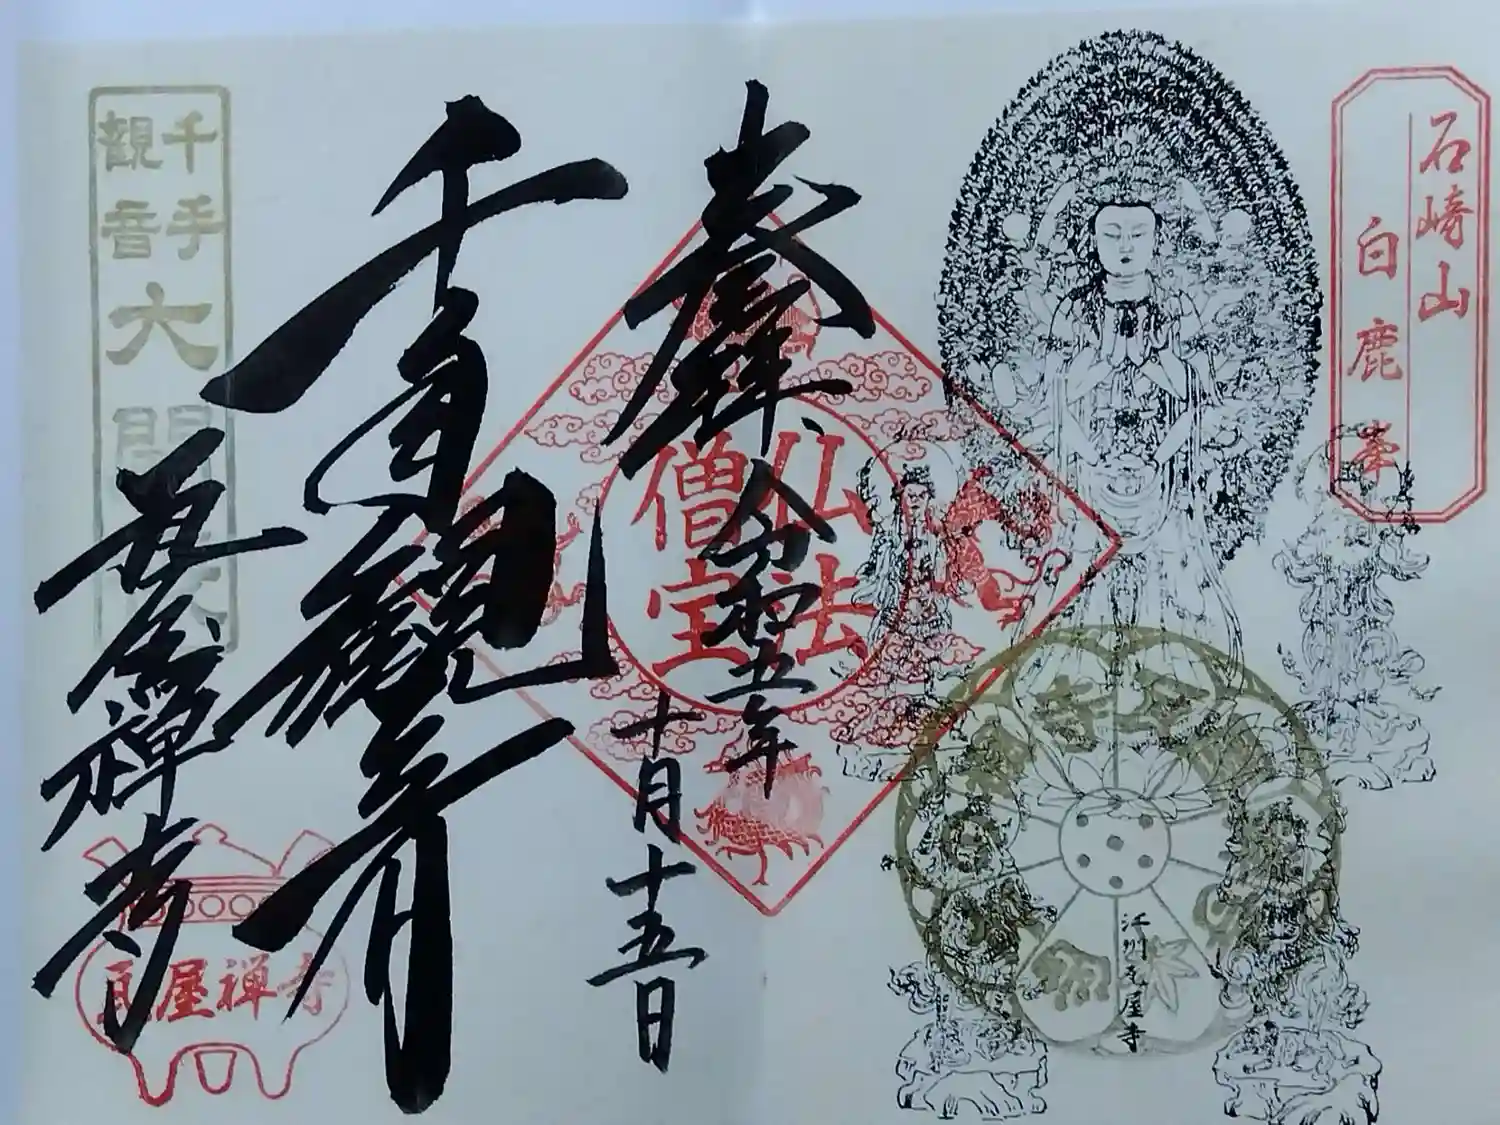 石崎山
白鹿峯
奉拝
令和五年
十月十五日
仏法
僧宝
千手観音
瓦屋禅寺
千手
観音
大開
瓦屋禅寺
江州瓦屋寺